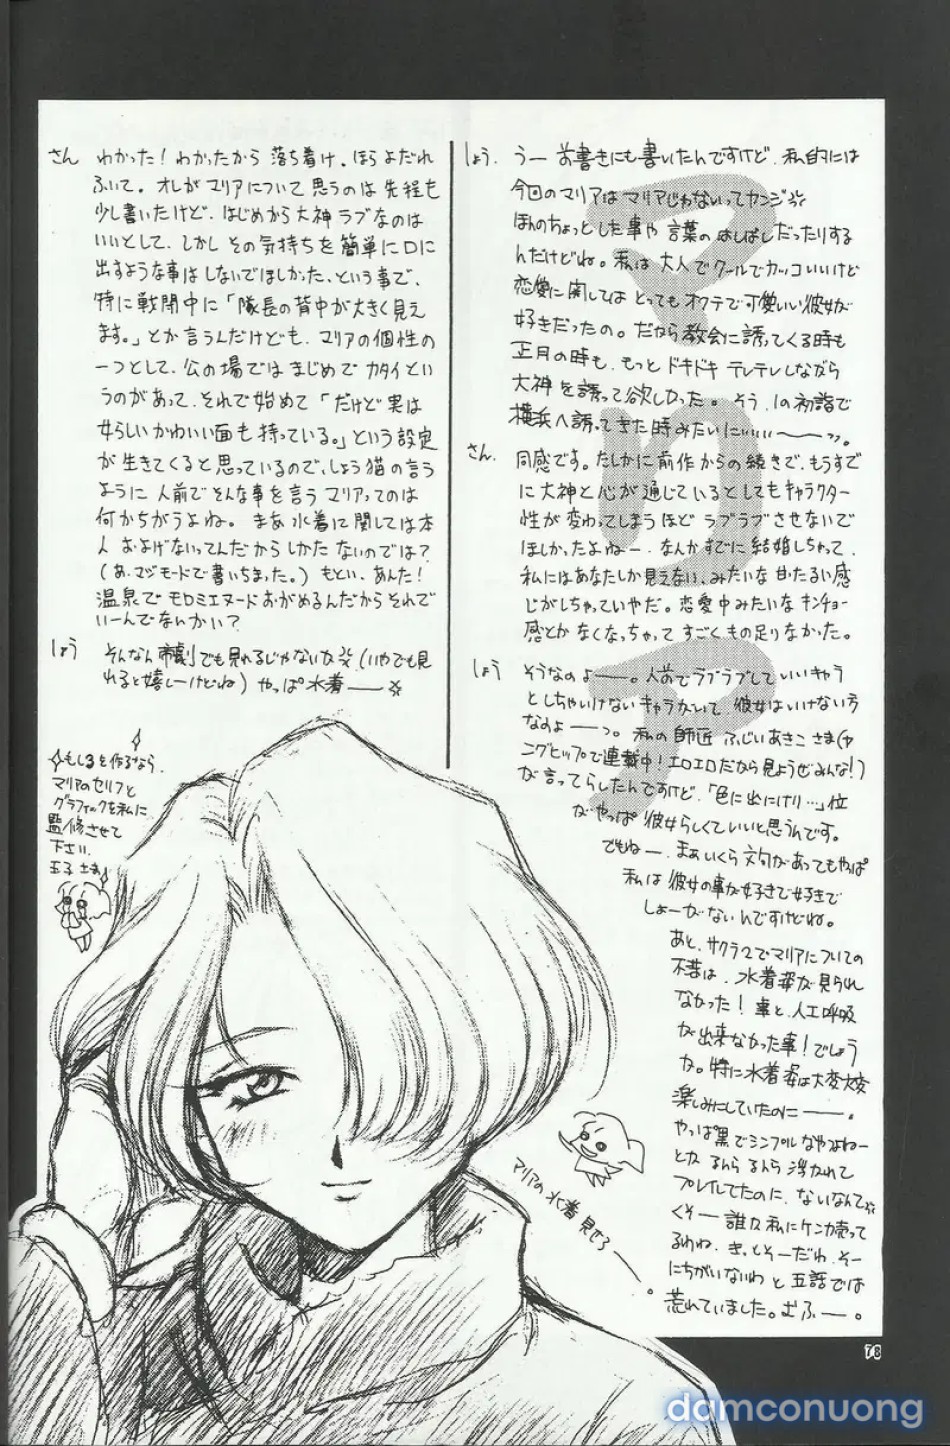 しょう. うー お書きにも書いたんですけど、私的には
今回のマリアはマリアじゃないってカンジ
ほんのちょっとした事や言葉のはしばしだったりする
んだけどね。私は大人でクールでカッコいいけど
恋愛に関してはとってもオクテで可愛いい彼女が
好きだったの。だから教会に誘ってくる時も
正月の時も、もっとドキドキテレテレしながら
大神を誘って欲しかった。そう、1の初詣で
横浜へ誘ってきた時みたいにぃぃぃぃーーっ。
さん. 同感です。たしかに前作からの続きで、もうすで
に大神と心が通じているとしてもキャラクター
性が変わってしまうほどラブラブさせないで
ほしかったよねー.なんかすでに結婚しちゃって、
私にはあなたしか見えない、みたいな甘たるい感
じがしちゃっていやだ。恋愛中みたいなキンチョー
感とかなくなっちゃってすごくもの足りなかった。
しょう そうなのよーー。人前でラブラブしていいキャラ
としちゃいけないキャラがいて 彼女はいけない方
なのよーーっ。私の師匠 ふじいあきこさま(ヤ
ングヒップで連載中!エロエロだから見ようぜみんな!)
が言ってらしたんですけど、「色に出にけり…」位
がやっぱ彼女らしくていいと思うんです。
でもねー、まぁいくら文句があってもやっぱ
私は彼女の事が好きで好きで
しょーがないんですけどね。
あと、サクラ2でマリアについての
不満は、水着姿が見られ
なかった!事と、人工呼吸
が出来なかった事!でしょう
か。特に水着姿は大変大変
楽しみにしていたのにーー。
やっぱ黒でシンプルなやつよねー
とか るんらるんら浮かれて
プレイしてたのに、ないなんて
くそー 誰か私にケンカ売って
るわね、きっとそーだわ、そー
にちがいないわ と五話では
荒れていました。むふー。
さん わかった!わかったから落ち着け、ほらよだれ
ふいて。オレがマリアについて思うのは先程も
少し書いたけど、はじめから大神ラブなのは
いいとして、しかしその気持ちを簡単に口に
出すような事はしないでほしかった、という事で、
特に戦闘中に「隊長の背中が大きく見え
ます。」とか言うんだけども、マリアの個性の
一つとして、公の場ではまじめでカタイとい
うのがあって、それで始めて「だけど実は
女らしいかわいい面も持っている。」という設定
が生きてくると思っているので、しょう猫の言う
ように人前でそんな事を言うマリアってのは
何かちがうよね。まあ水着に関しては本
人およげないってんだからしかたないのでは?
(あ、マジモードで書いちまった。)もとい、あんた!
温泉でモロミエヌードおがめるんだからそれで
いーんでないかい?
しょう そんなん帝劇でも見れるじゃないな(いやでも見
れると嬉しーけどね) やっぱ水着ーー
もし3を作るなら、
マリアのセリフと
グラフィックを私に
監修させて
下さい、
王子さま
マリアの水着見せろー。
マリア
78
damconuong